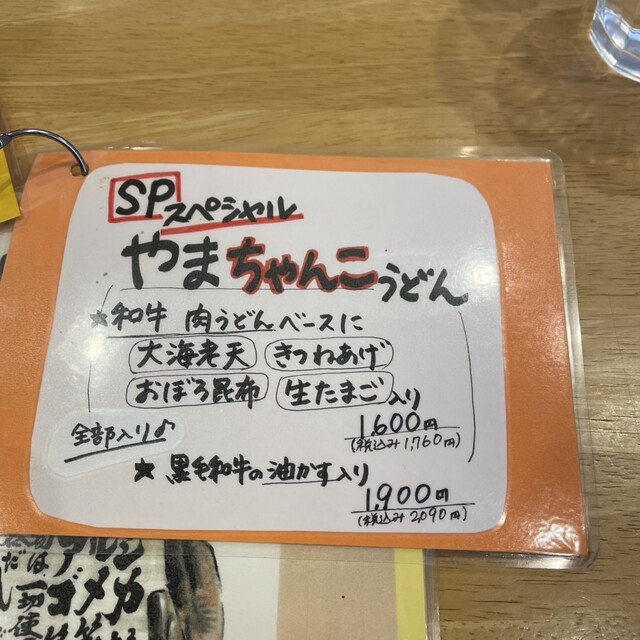 SP スペシャル
やまちゃんこうどん
★和牛 肉うどんベースに
大海老天 きつねあげ
おぼろ昆布 生たまご 入り
全部入り♪
1,600円
(税込み1,760円)
★黒毛和牛の油かす入り
1,900円
(税込み2,090円)